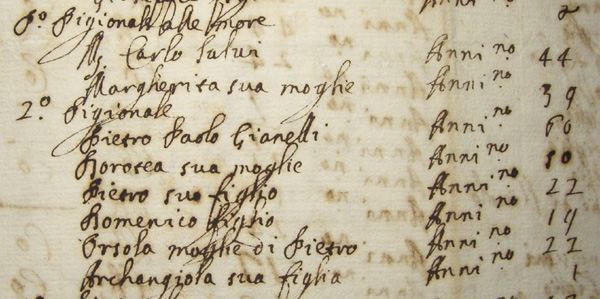 P.º Pigionale alle More
M. Carlo Salui Anni n.º 44
Margherita sua moglie Anni n.º 39
2.º Pigionale
Pietro Paolo Gianelli Anni n.º 60
Dorotea sua moglie Anni n.º 50
Pietro suo figlio Anni n.º 22
Domenico figlio Anni n.º 19
Orsola moglie di Pietro Anni n.º 22
Archangiola sua figlia Anni n.º 1